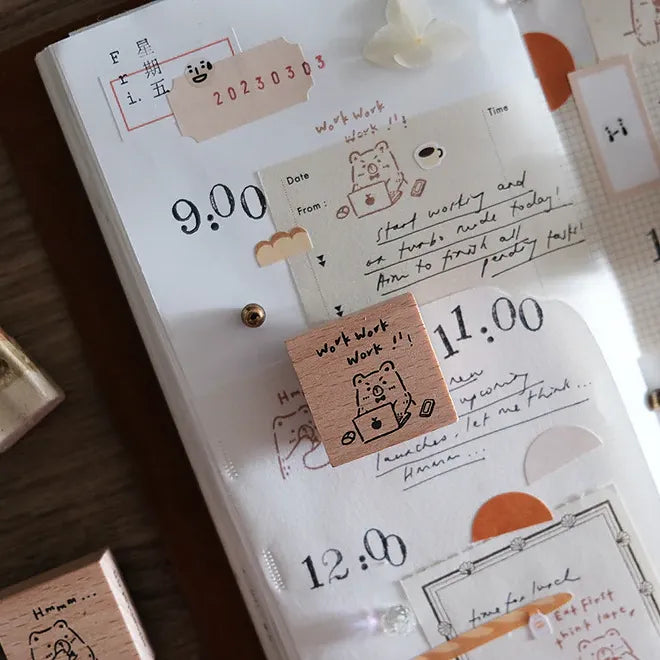 Fri.
星期五
20230303
Work Work
Work !!!
Time
Date
From:
9:00
start working and
on turbo mode today!
Aim to finish all
pending tasks!
11:00
Work Work
Work !!!
Hm
new
upcoming
launches. let me think...
Hmmm...
12:00
time for lunch
Eat First
think later,
Hmmm...